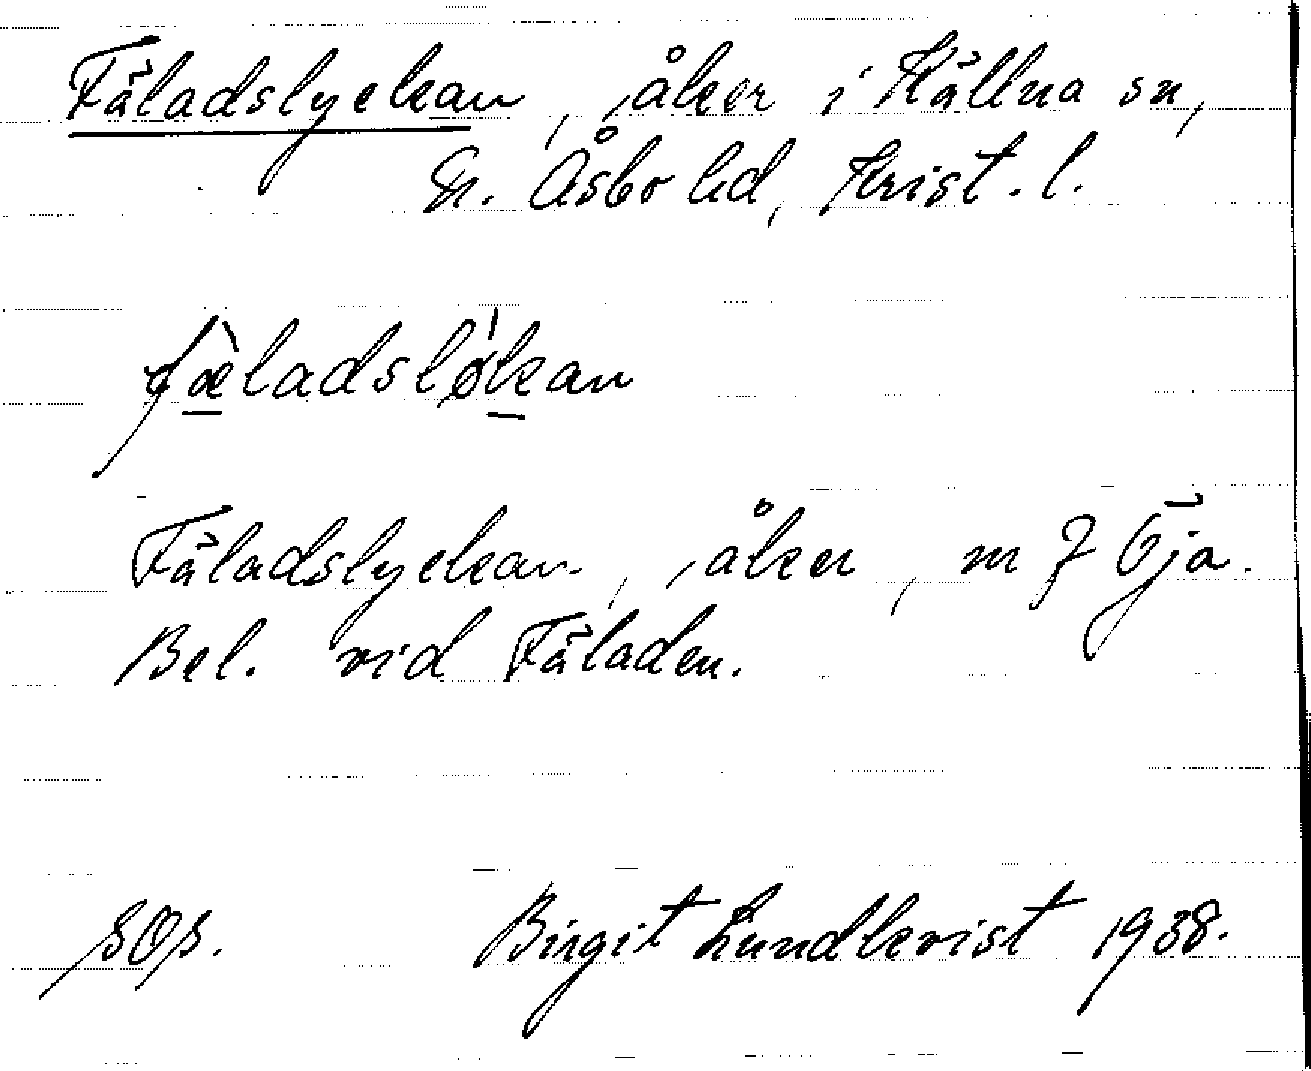 Fäladslyckan, åker i Källna sn,
N. Åsbo hd, Krist. l.
fæ̀ladsløkan
Fäladslyckan, åker, m 7 Gja.
Bel. vid Fäladen.
SOS. Birgit Lundkvist 1938.